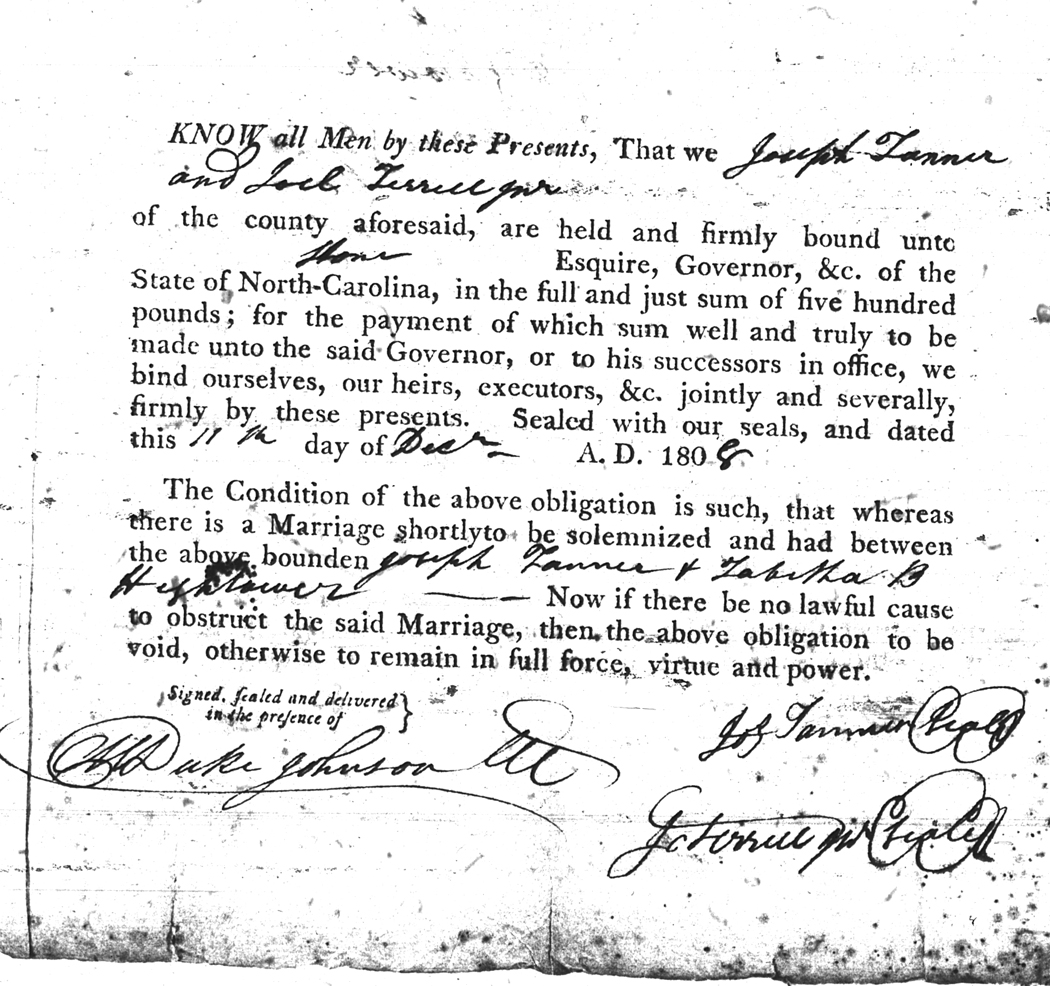 KNOW all Men by these Presents, That we Joseph Tanner
and Joel Terrell Jnr
of the county aforesaid, are held and firmly bound unto
Stone Esquire, Governor, &c. of the
State of North-Carolina, in the full and just sum of five hundred
pounds; for the payment of which sum well and truly to be
made unto the said Governor, or to his successors in office, we
bind ourselves, our heirs, executors, &c. jointly and severally,
firmly by these presents. Sealed with our seals, and dated
this 11th day of Decr A. D. 1808
The Condition of the above obligation is such, that whereas
there is a Marriage shortlyto be solemnized and had between
the above bounden Joseph Tanner & Tabitha B
Hightower Now if there be no lawful cause
to obstruct the said Marriage, then the above obligation to be
void, otherwise to remain in full force, virtue and power.
Signed, ſealed and delivered }
in the preſence of
Jos Tanner (seal)
Duke Johnson
Terrell Jnr (seal)